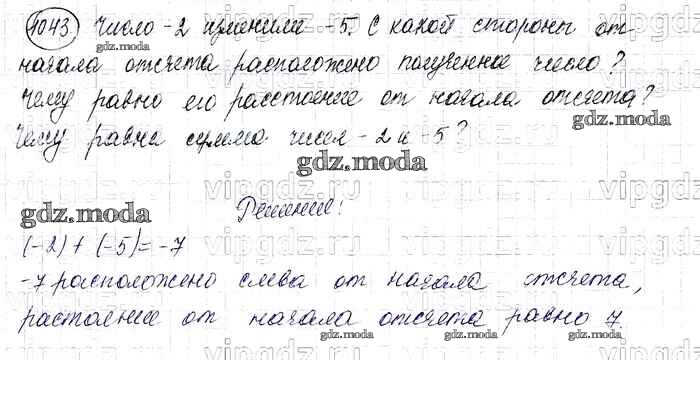 1043. Число -2 изменили -5. С какой стороны от
начала отсчета расположено полученное число?
Чему равно его расстояние от начала отсчета?
gdz.moda
Чему равна сумма чисел -2 и -5?
gdz.moda
vipgdz.ru
gdz.moda
Решение:
(-2) + (-5) = -7
-7 расположено слева от начала отсчета,
растояние от начала отсчета равно 7.
gdz.moda gdz.moda gdz.moda